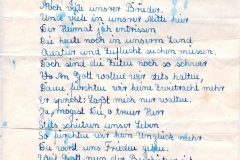 Noch viele unserer Brüder,
Und viele in unsrer Mitte hier
Der Heimat jäh entrissen
Die heute noch in unserm Land
und Zuflucht suchen müssen,
Doch sind die Zeiten noch so schwer
Gott wollen wir stets halten,
Dann fürchten wir keine Zwietracht mehr
Er spricht: Laßt mich nur walten.
Ja, mögest Du, o treuer Herr
Stets schützen unser Leben
So fürchten wir kein Unglück mehr
Du wirst uns Frieden geben
Gott nun